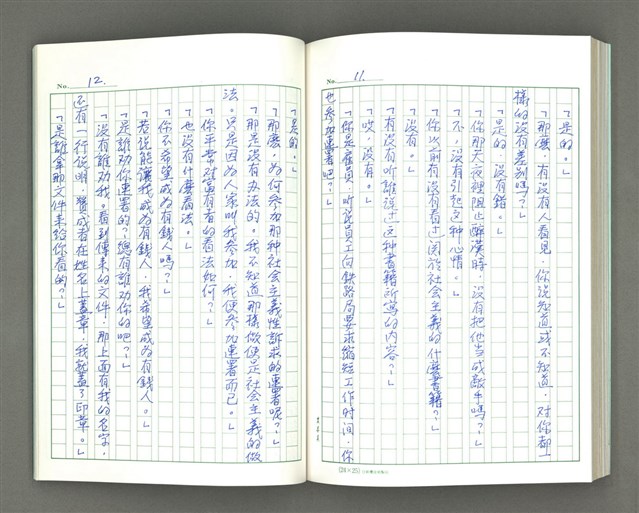 No. 11.
「是的。」
「那麼，有沒有人看見，你說知道或不知道，對你都一
樣的沒有差別嗎？」
「是的，沒有錯。」
「你那天夜裡阻止醉漢時，沒有把他当成敵手嗎？」
「不，沒有引起这种心情。」
「你以前有沒有看过関於社会主義的什麼書籍？」
「沒有。」
「有沒有听誰說过这种書籍所寫的內容？」
「哎，沒有。」
「你是雇員，听說員工向鉄路局要求縮短工作时间，你
也参加連署吧？」
(24×25)
No. 12.
「是的。」
「那麼，为何参加那种社会主義性訴求的連署呢？」
「那是沒有办法的。我不知道那樣做便是社会主義的做
法。只是因为人家叫我参加，我便参加連署而已。」
「你平常对富有者的看法如何？」
「也沒有什麼看法。」
「你不希望成为有錢人嗎？」
「若說能讓我成为有錢人，我希望成为有錢人。」
「是誰劝你連署的？總有誰劝你的吧？」
「沒有誰劝我。看到傳來的文件，那上面有我的名字，
还有一行說明，贊成者在姓名上蓋章，我就蓋了印章。」
「是誰拿那文件來給你看的？」